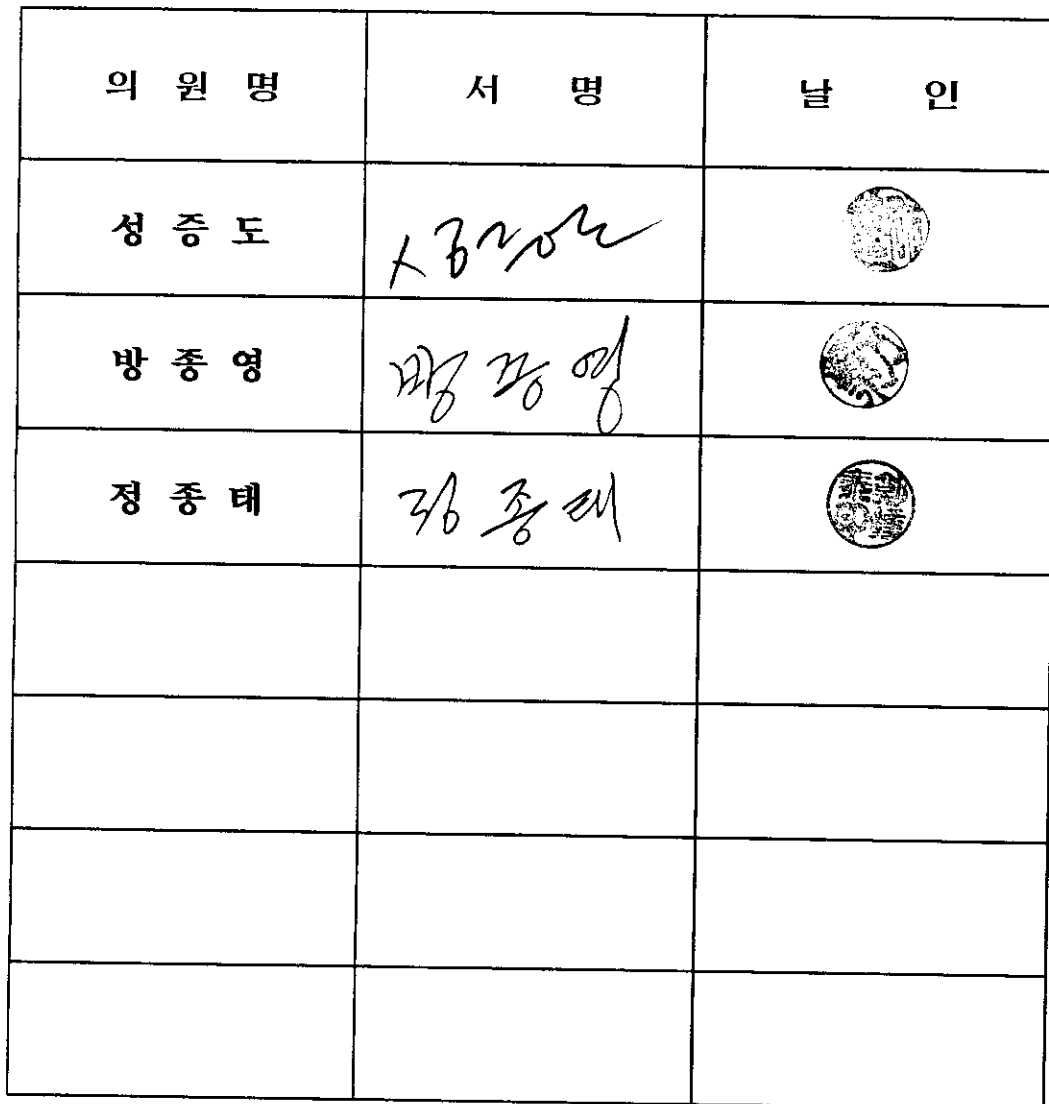 의 원 명 서 명 날 인
성 증 도
방 종 영 방 종 영
정 종 태 정 종 태